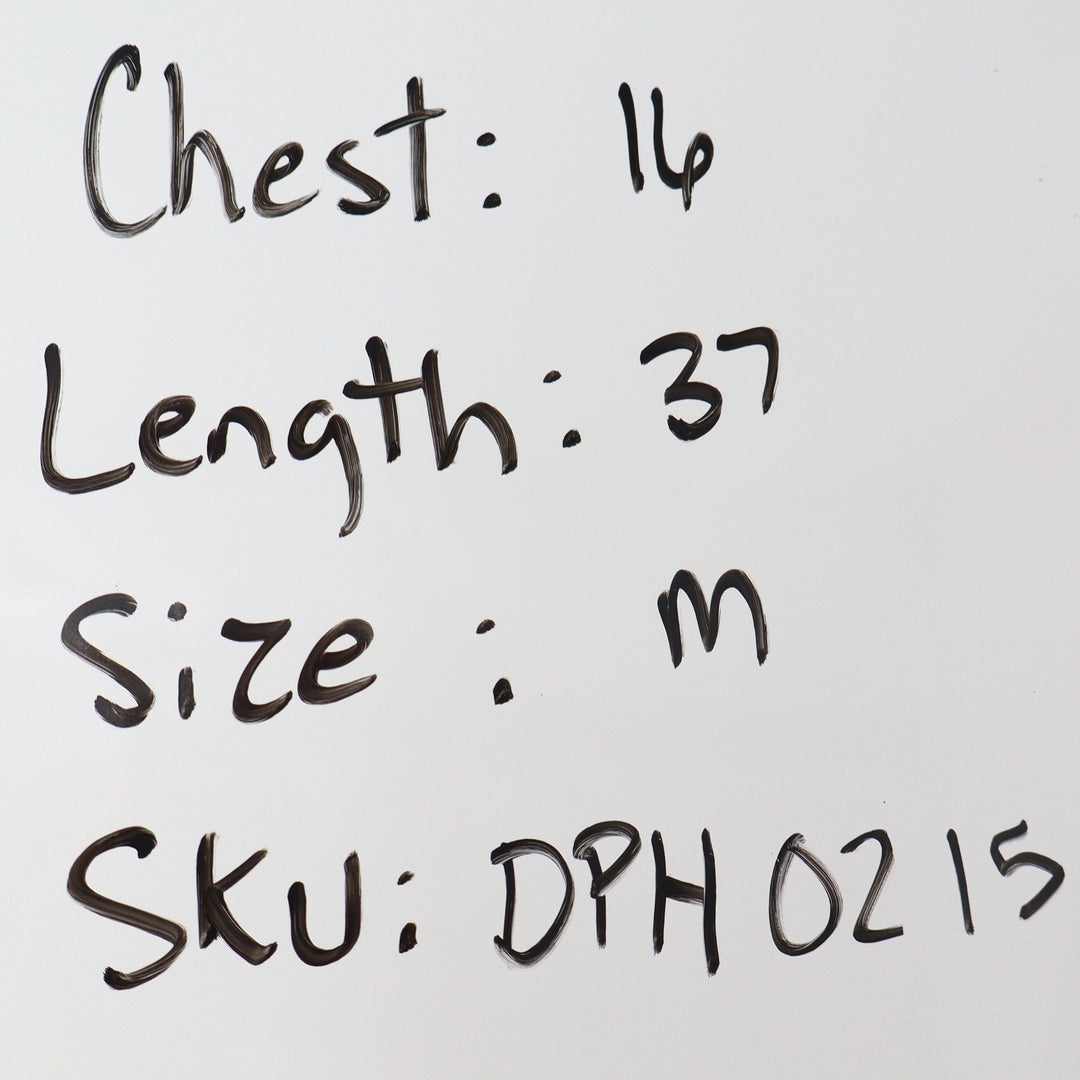 Chest: 16
Length: 37
Size: M
SKU: DPH0215